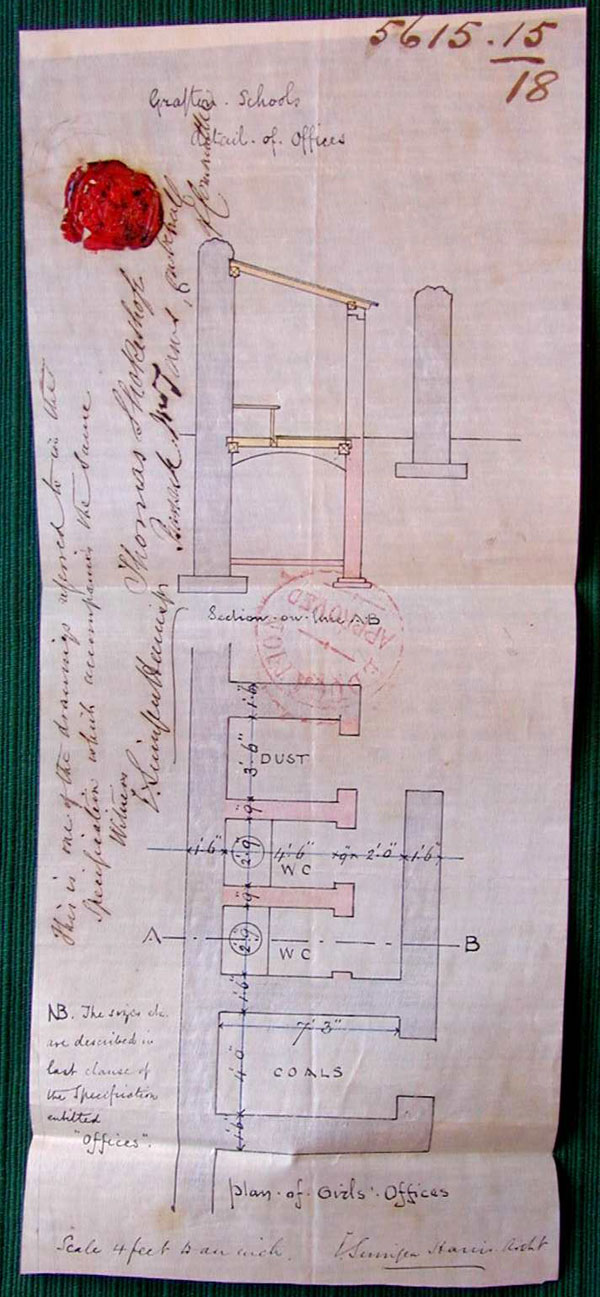 5615.15
18
Grafton Schools
detail of Offices
This is one of the drawings referred to in the
Specification which accompanies the same
Witness
Thomas
Section on line AB
APPROVED
1'.6"
3'.6"
DUST
9"
1'.6"
2'.9"
4'.6"
9"
2'.0"
1'.6"
WC
9"
A
2'.9"
B
WC
1'.6"
7'.3"
4'.0"
COALS
1'.6"
NB. The sizes &c.
are described in
last clause of
the Specification
entitled
"Offices".
Plan of Girls' Offices
Scale 4 feet to an inch.
Harris Archt